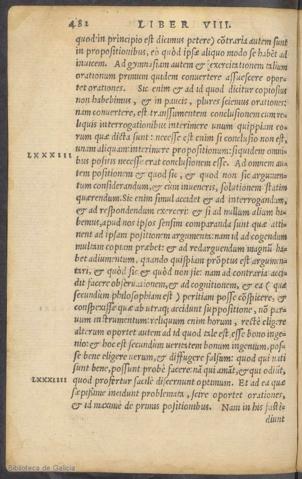 482 LIBER VIII.
quod in principio est dicimus petere) cõtraria autem sunt
in propositionibus, eò quòd ipsæ aliquo modo se habẽt ad
inuicem. Ad gymnasiam autem & exercitationem talium
orationum primum quidem conuertere assuescere opor-
tet orationes. Sic enim & ad id quod dicitur copiosius
non habebimus, & in paucis, plures sciemus orationes:
nam conuertere, est transsumentem conclusionem cum re-
liquis interrogationibus interimere unum quippiam eo-
rum quæ dicta sunt: necesse est enim si conclusio non est,
unam aliquam interimere propositionem: siquidem omni-
LXXXIII bus positis necesse erat conclusionem esse. Ad omnem au-
tem positionem & quod sic, & quod non sic argumen-
tum considerandum, & cum inueneris, solutionem statim
quærendum. Sic enim simul accidet & ad interrogandum,
& ad respondendum exerceri: & si ad nullum alium ha-
bemus, apud nos ipsos sensim comparanda sunt quæ atti-
nent ad ipsam positionem argumenta: nam id ad cogendum
multam copiam præbet: & ad redarguendum magnũ ha-
bet adiumentum, quando quispiam prõptus est argumen-
tari, & quòd sic & quòd non sic: nam ad contraria acci-
dit facere obseruationem, & ad cognitionem, & ea (quæ
secundum philosophiam est) peritiam posse cõspicere, &
conspexisse quæ ab utraq; accidunt suppositione, nõ par-
uum instrumentum: reliquum enim horum, rectè elige re
alterum oportet autem ad id quod tale est esse bene inge-
nio: & hoc est secundum ueritatem bonum ingenium, pos-
se bene eligere uerum, & diffugere falsum: quod qui nati
sunt bene, possunt probè facere: nã qui amãt, & qui odiũt,
LXXXIIII quod profertur facilè discernunt optimum. Et ad ea quæ
sæpissime incidunt problemata, scire oportet orationes,
& id maximè de primis positionibus. Nam in his facilè
diunt
Biblioteca de Galicia